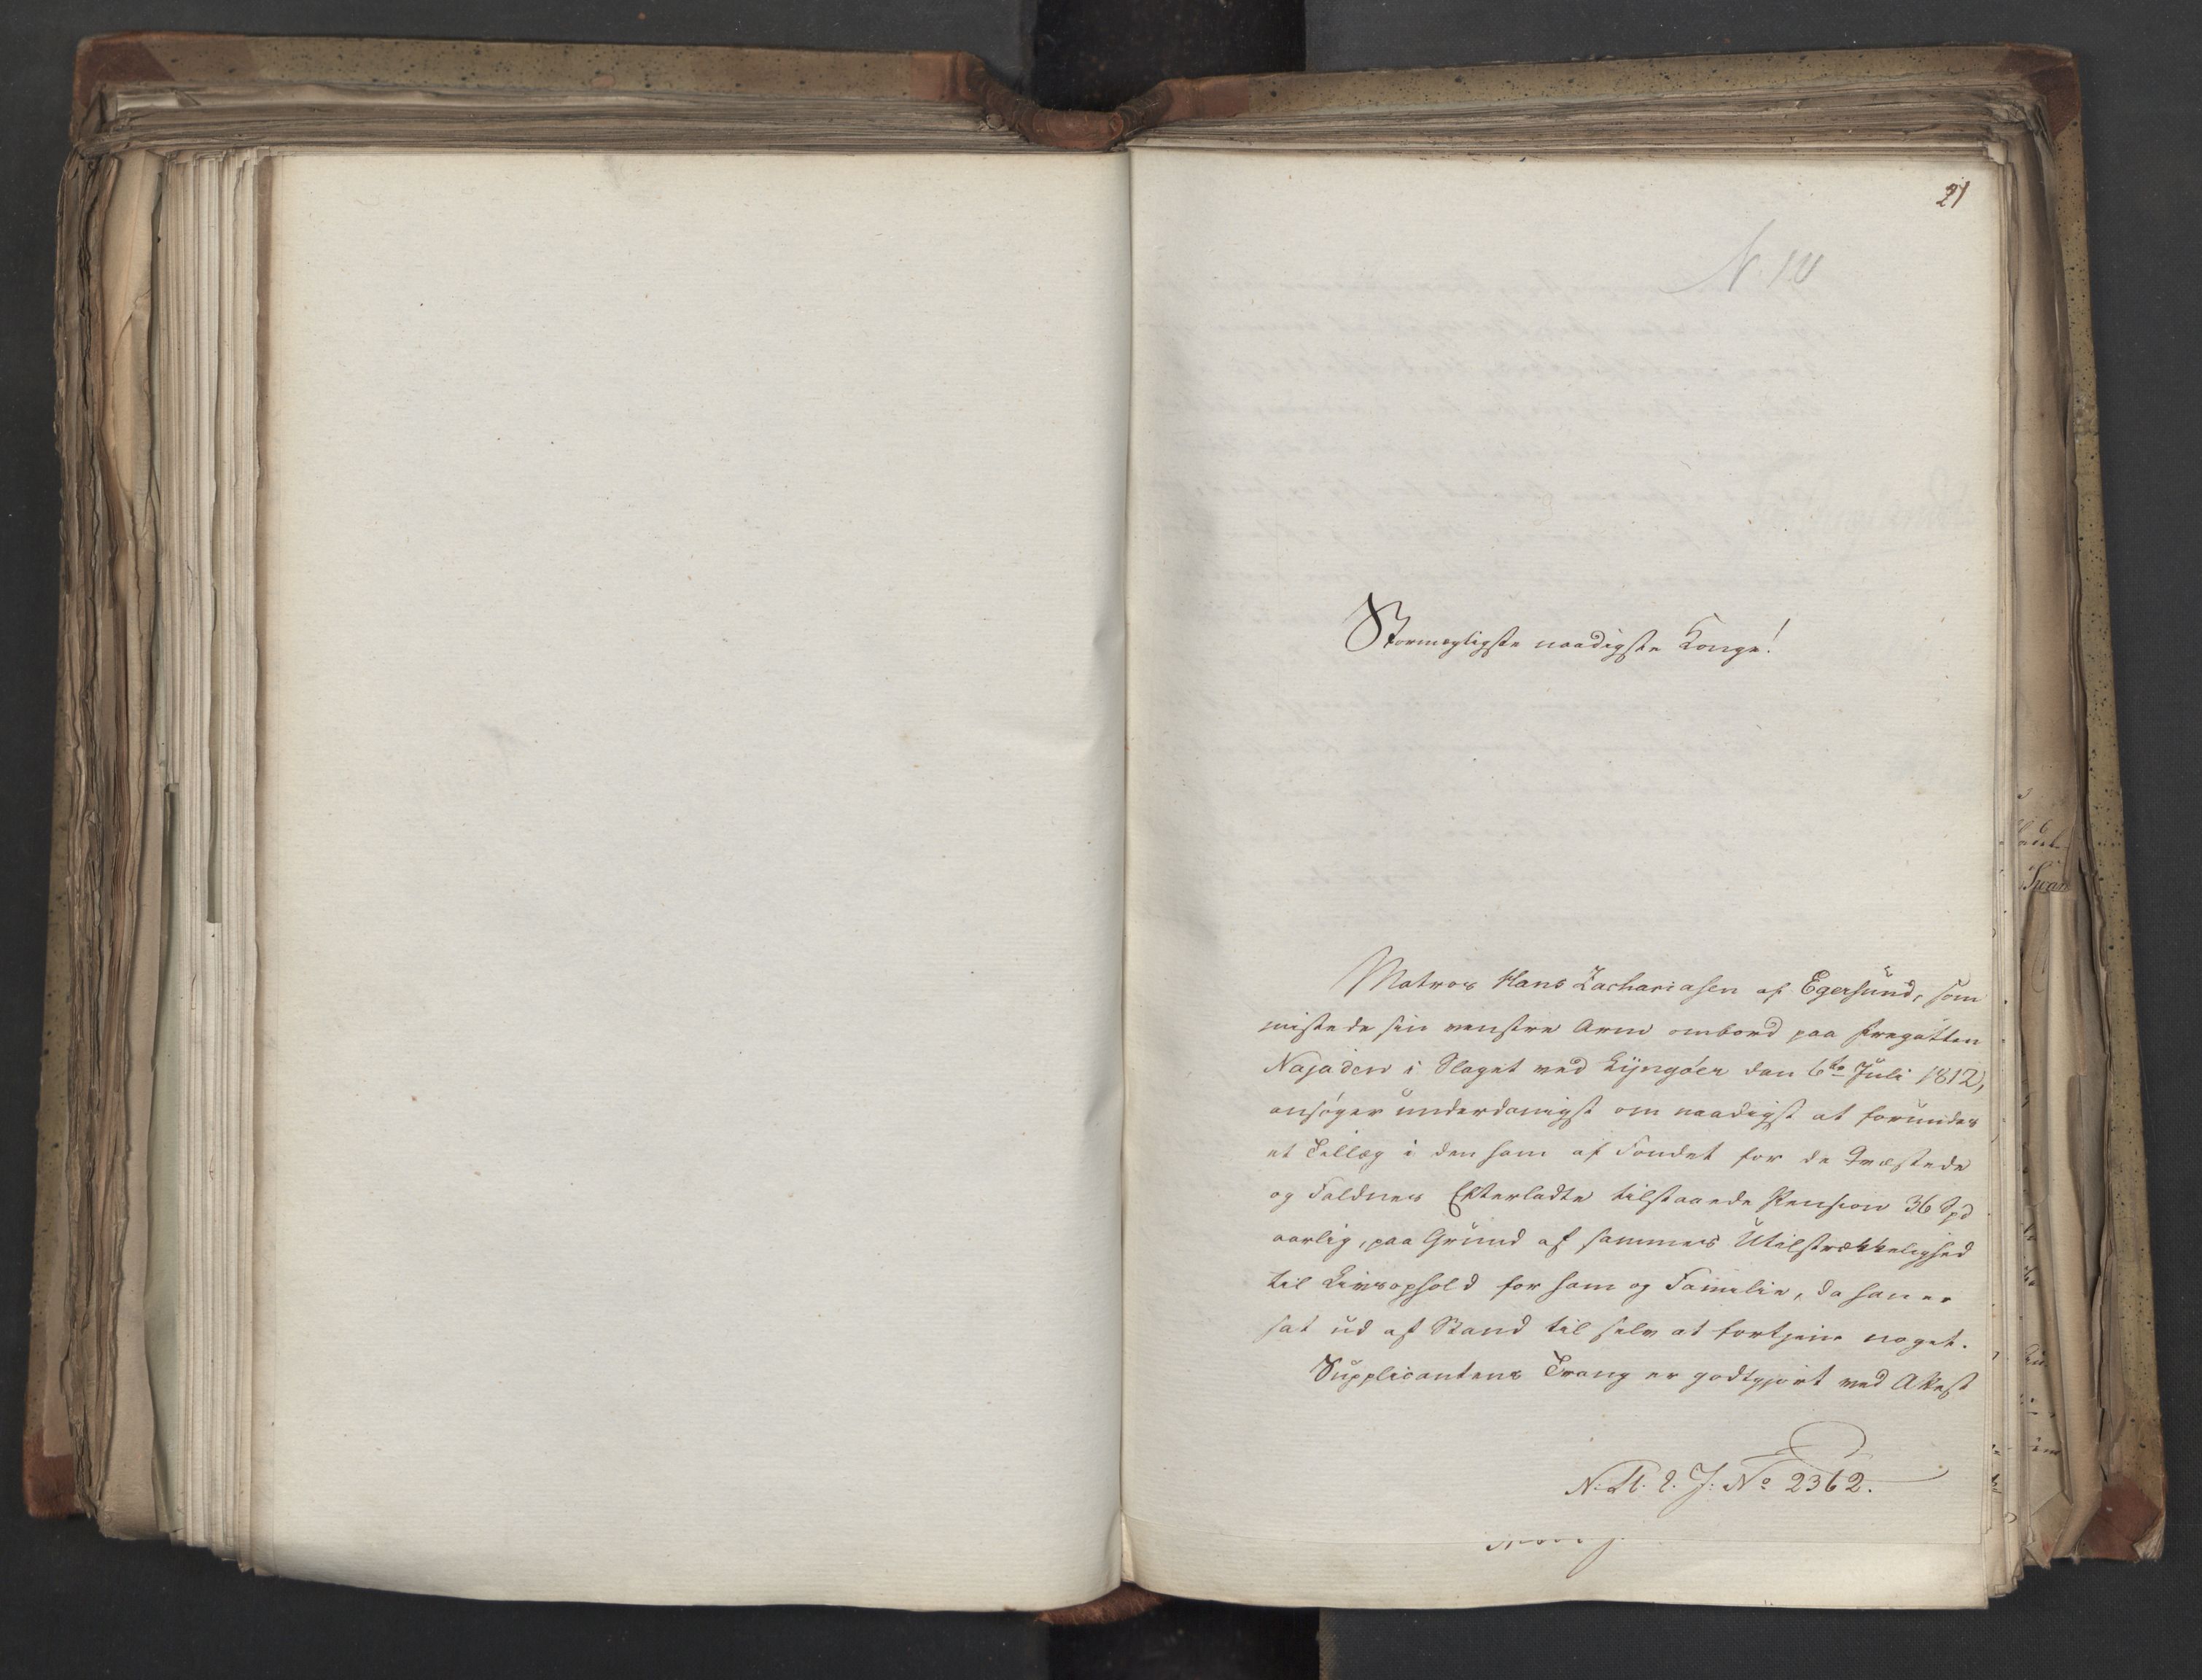 21
N. 10
Stormægtigste naadigste Konge!
Matros Hans Zachariasen af Egersund, som
mistede sin venstre Arm ombord paa Fregatten
Najaden i Slaget ved Lyngøer den 6te Juli 1812,
ansøger underdanigst om naadigst at forundes
et Tillæg i den ham af Fondet for de Qvæstede
og Faldnes Efterladte tilstaaede Pension 36 Spd
aarlig, paa Grund af sammes Utilstrækkelighed
til Livsophold for ham og Familie, da han er
sat ud af Stand til selv at fortjene noget.
Supplicantens Trang er godtgjort ved Attest
N. J: No 2362.